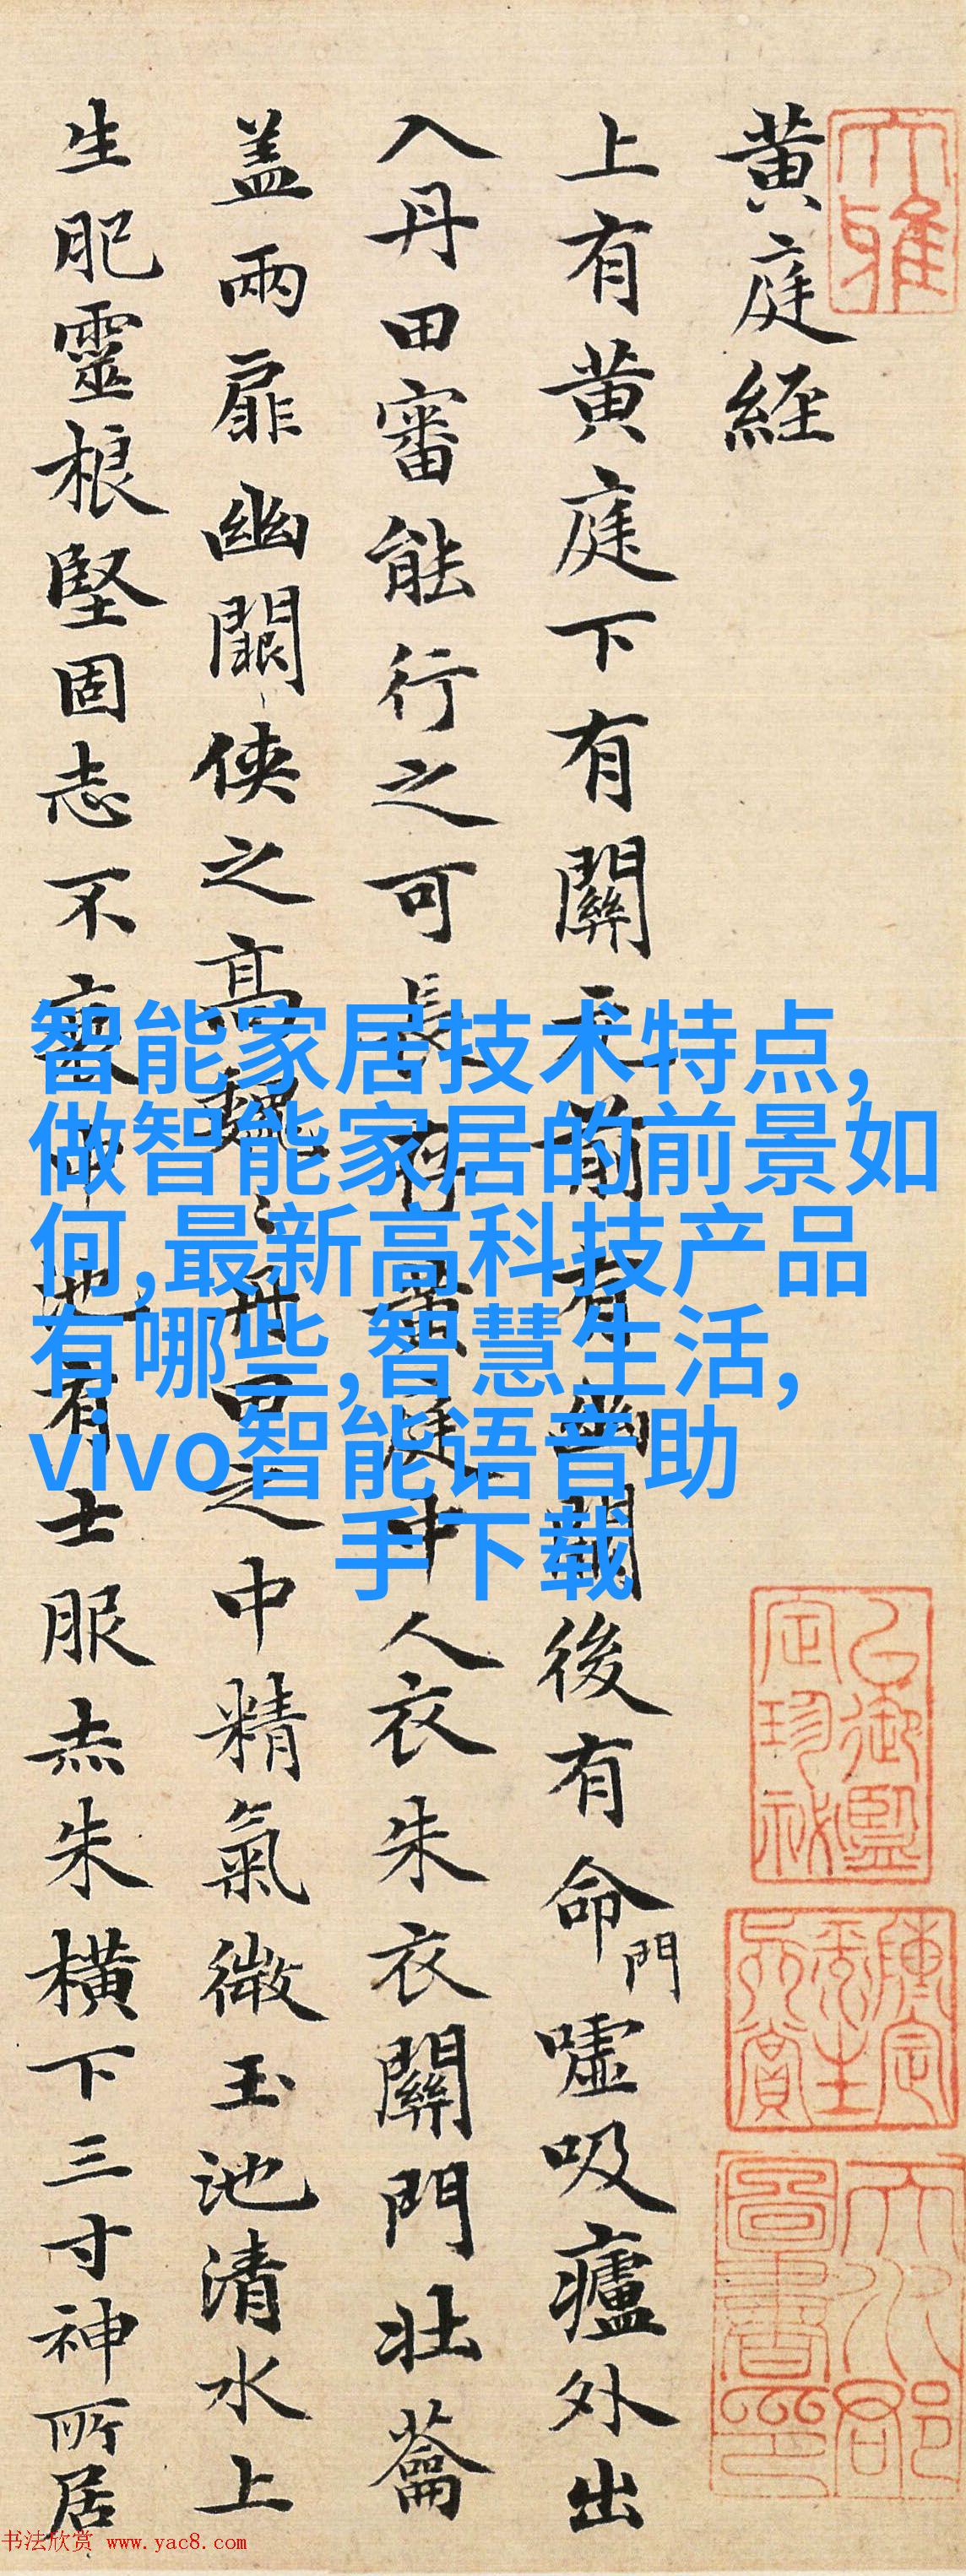 大雅
黄庭経
上有黄庭下有關元前有幽闕後有命門嘘吸廬外出
入丹田審能行之可長存黄庭中人衣朱衣關門壯蘥
盖兩扉幽闕侠之高巍〻丹田之中精氣微玉池清水上
生肥靈根堅固志不衰中池有士服赤朱横下三寸神所居
智能家居技术特点,
做智能家居的前景如
何,最新高科技产品
有哪些,智慧生活,
vivo智能语音助
手下载
书法欣赏 www.yac8.com